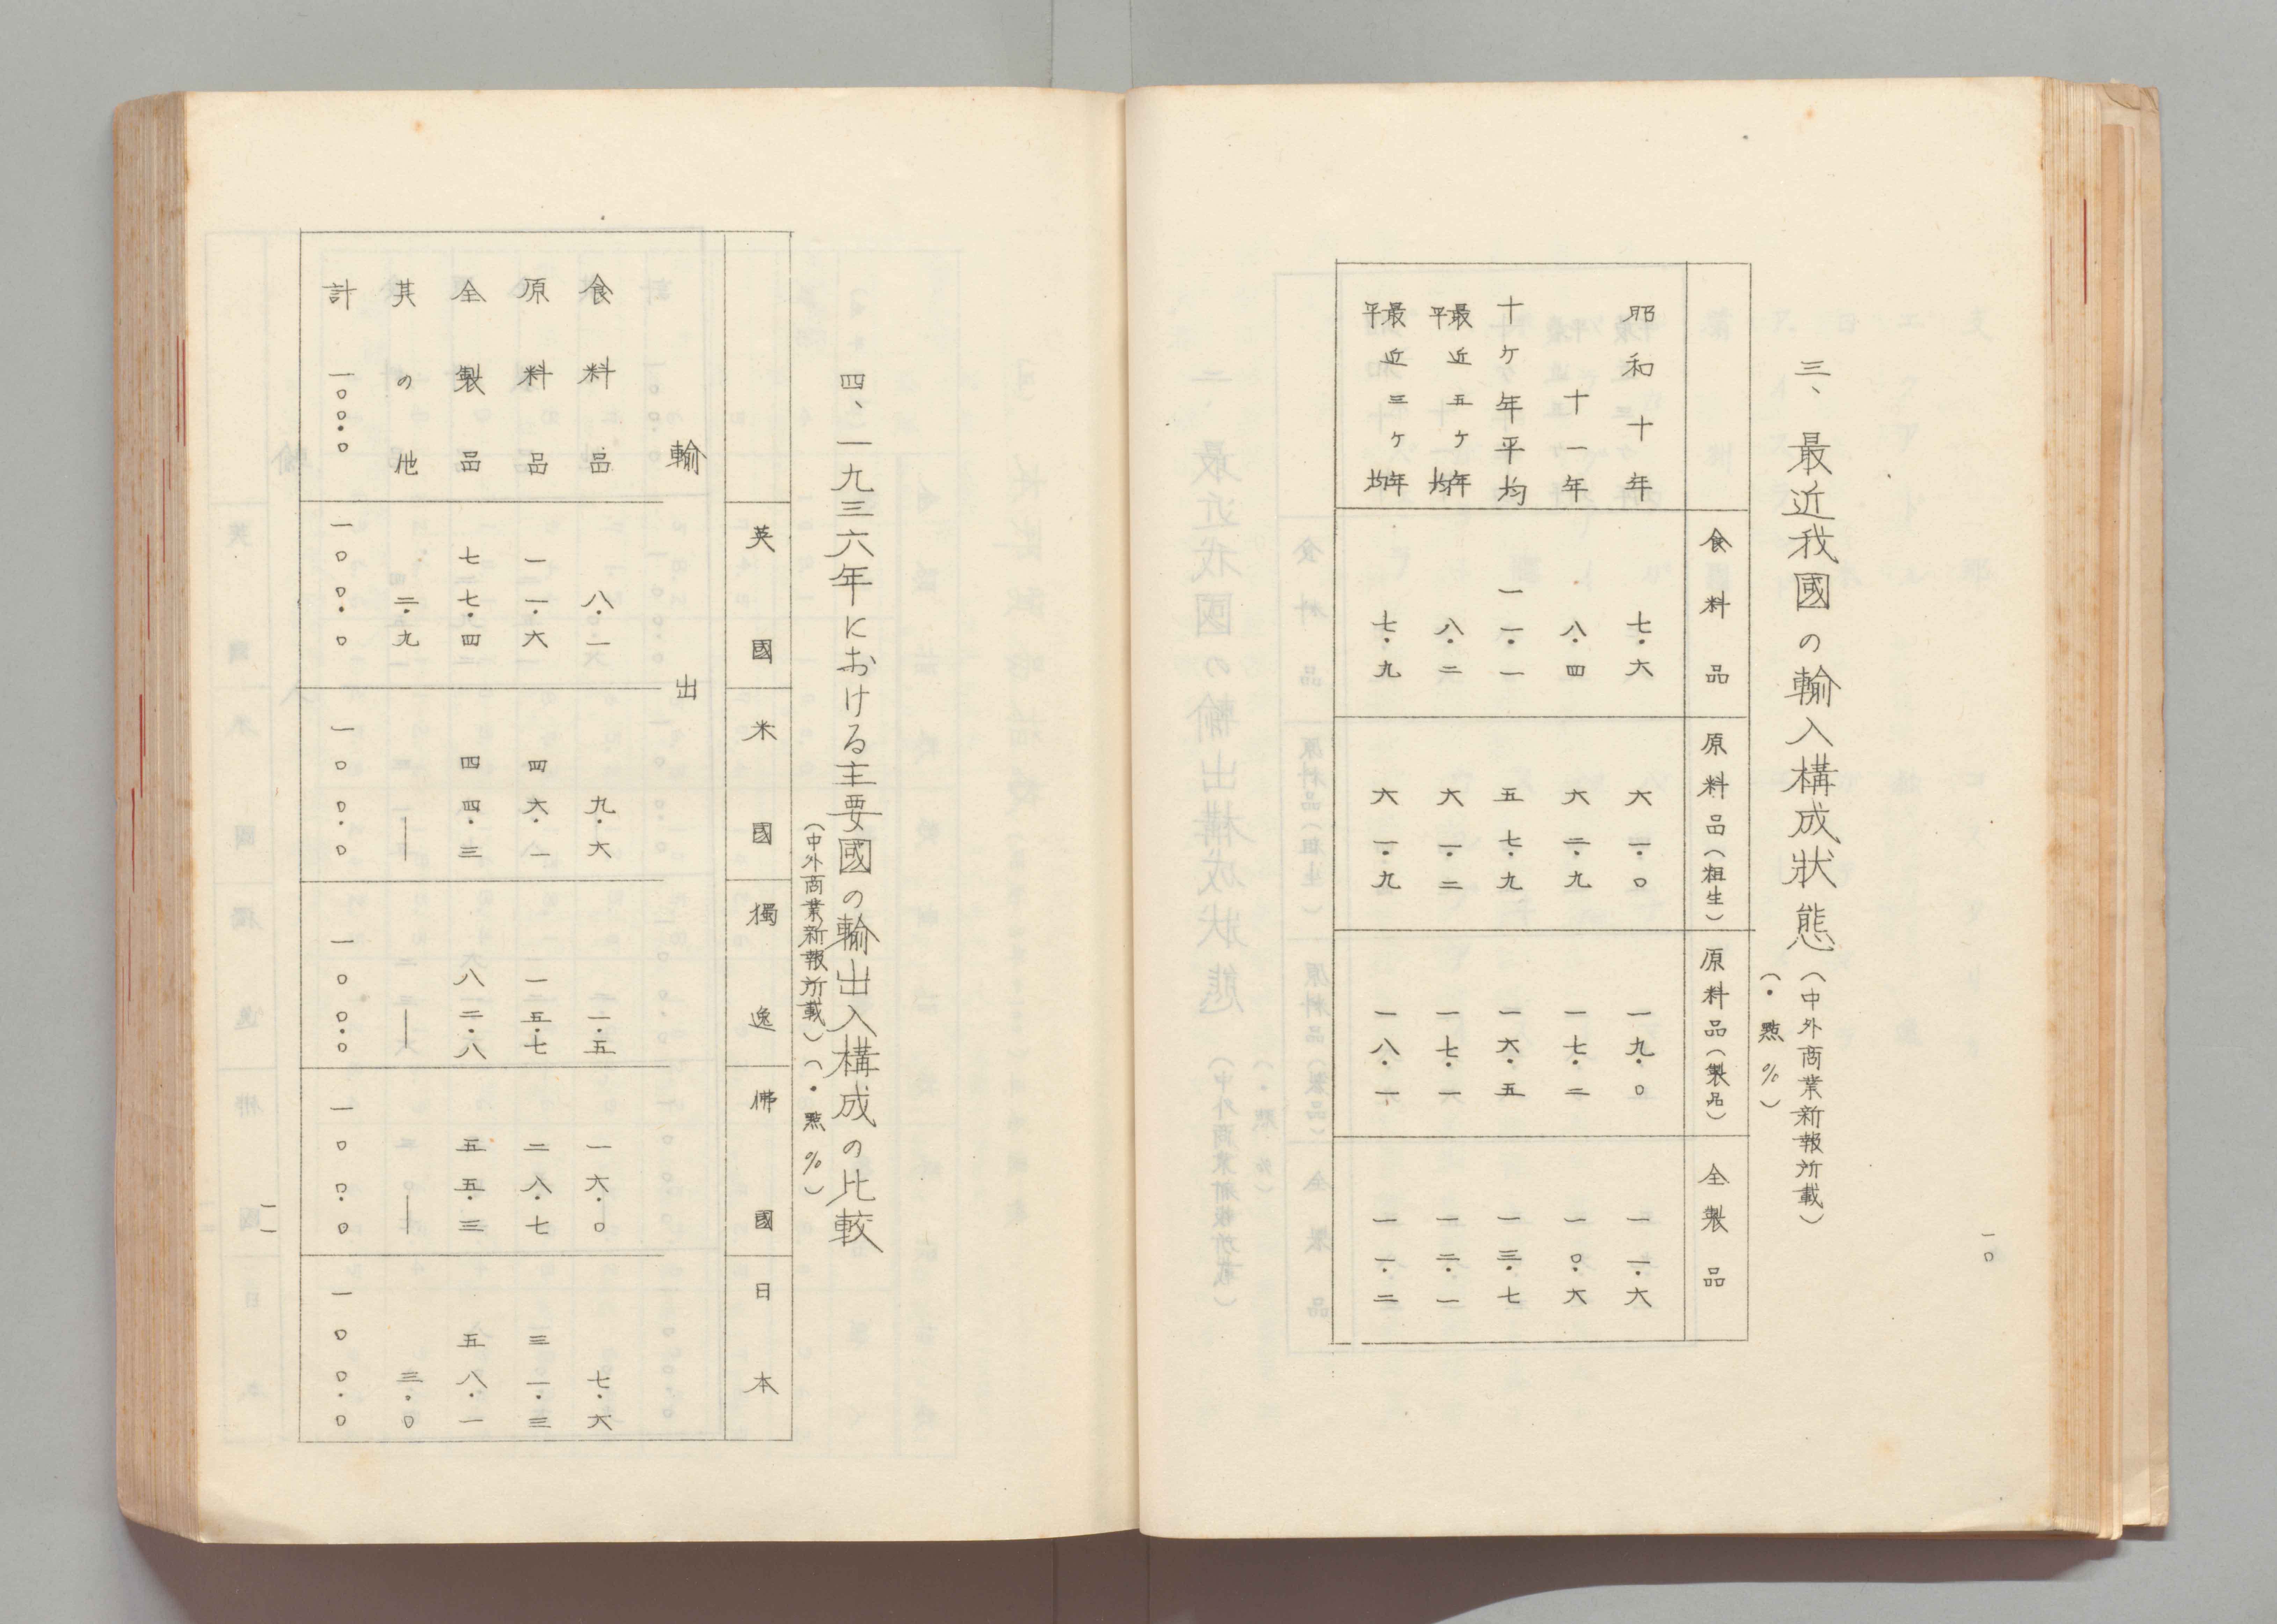 一〇
三、最近我國の輸入構成狀態（中外商業新報所載）
（・點％）
食料品 原料品（粗生） 原料品（製品） 全製品
昭和十年 七・六 六一・〇 一九・〇 一一・六
十一年 八・四 六二・九 一七・二 一〇・六
十ケ年平均 一一・一 五七・九 一六・五 一三・七
最近五ケ年平均 八・二 六一・二 一七・一 一二・一
最近三ケ年平均 七・九 六一・九 一八・一 一一・二
四、一九三六年における主要國の輸出入構成の比較
（中外商業新報所載）（・點％）
英國 米國 獨逸 佛國 日本
輸出
食料品 八・一 九・六 一・五 一六・〇 七・六
原料品 一一・六 四六・一 一五・七 二八・七 三一・三
全製品 七七・四 四四・三 八二・八 五五・三 五八・一
其の他 二・九 ― ― ― 三・〇
計一〇〇・〇 一〇〇・〇 一〇〇・〇 一〇〇・〇 一〇〇・〇 一〇〇・〇
一一